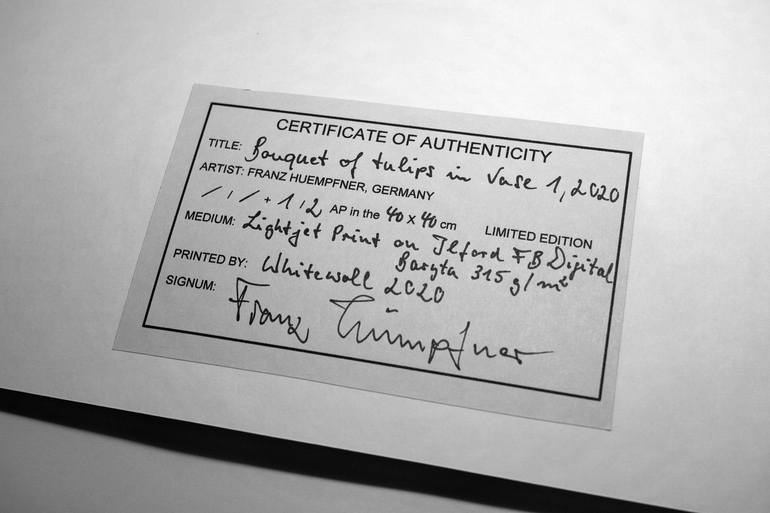 CERTIFICATE OF AUTHENTICITY
TITLE: Bouquet of tulips in Vase 1, 2020
ARTIST: FRANZ HUEMPFNER, GERMANY
/ 1 / + 1 / 2 AP in the 40 x 40 cm LIMITED EDITION
MEDIUM: Lightjet Print on Ilford FB Digital
Baryta 315 g/m²
PRINTED BY: Whitewall 2020
SIGNUM: Franz Hümpfner